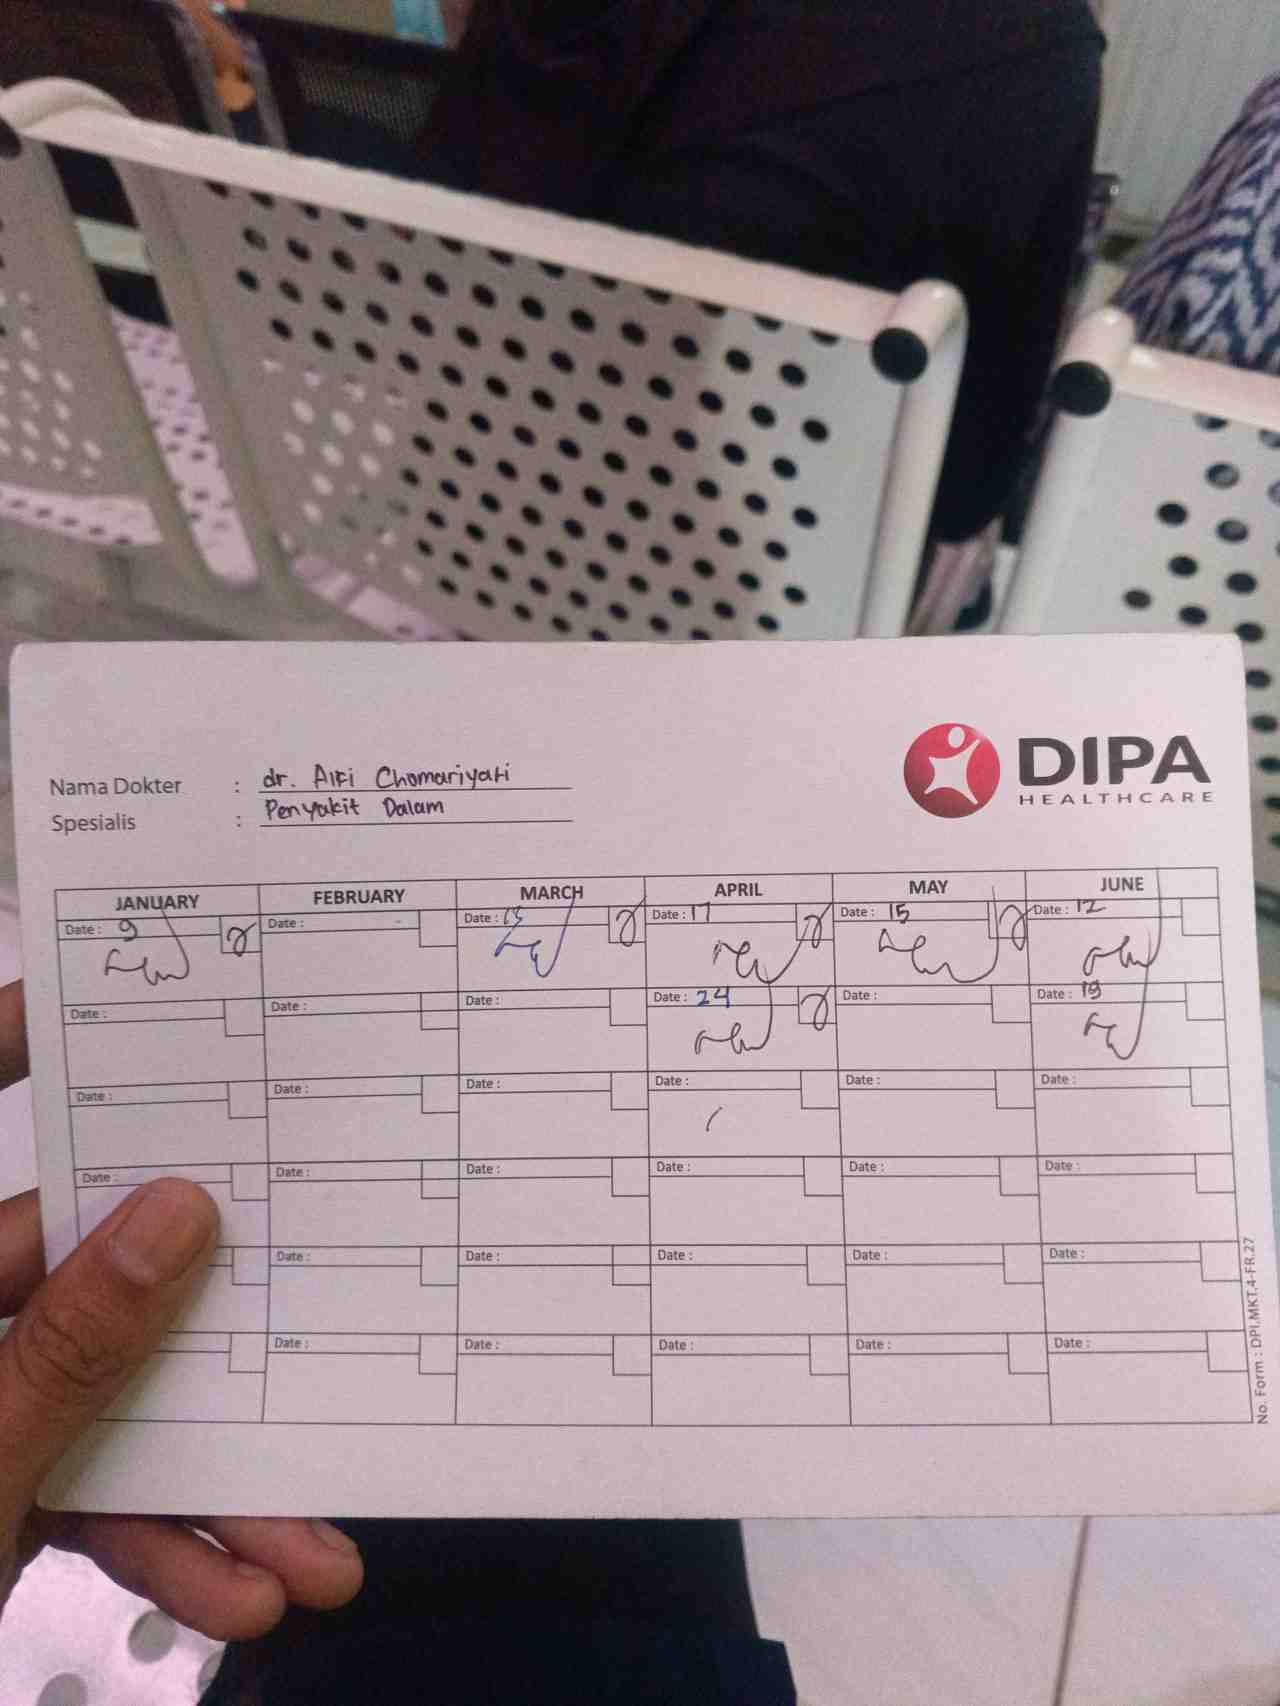 DIPA
HEALTHCARE
Nama Dokter : dr. Alfi Chomariyati
Spesialis : Penyakit Dalam
JANUARY FEBRUARY MARCH APRIL MAY JUNE
Date : 9 Date : Date : 13 Date : 17 Date : 15 Date : 12
Date : Date : Date : Date : 24 Date : Date : 19
Date : Date : Date : Date : Date : Date :
Date : Date : Date : Date : Date : Date :
Date : Date : Date : Date : Date :
Date : Date : Date : Date : Date :
No. Form : DPI.MKT.4-FR.27